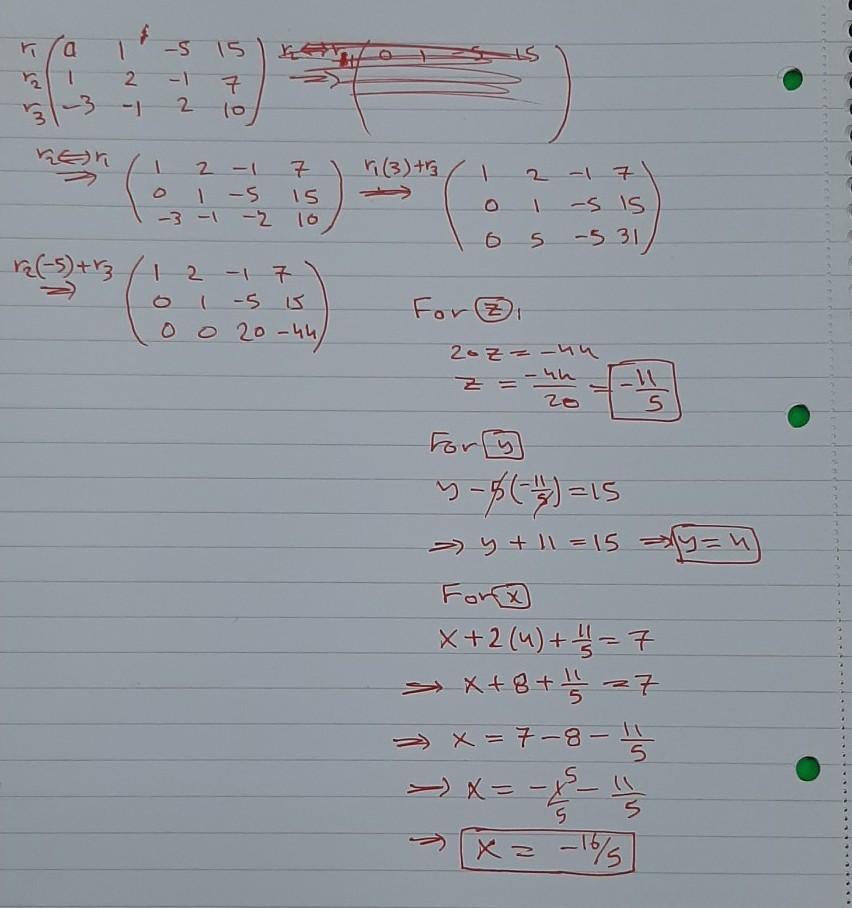 r1 ( 0 1 -5 15 ) r2 ⟺ r1 ⟹ ( 0 1 -5 15 )
r2 ( 1 2 -1 7 )
r3 ( -3 -1 2 10 )
r2 ⟺ r1 ⟹ ( 1 2 -1 7 ) r1(3)+r3 ⟹ ( 1 2 -1 7 )
( 0 1 -5 15 ) ( 0 1 -5 15 )
( -3 -1 -2 10 ) ( 0 5 -5 31 )
r2(-5)+r3 ⟹ ( 1 2 -1 7 )
( 0 1 -5 15 )
( 0 0 20 -44 )
For z,
20z = -44
z = -44/20 = -11/5
For y
y - 5(-11/5) = 15
⟹ y + 11 = 15 ⟹ y = 4
For x
x + 2(4) + 11/5 = 7
⟹ x + 8 + 11/5 = 7
⟹ x = 7 - 8 - 11/5
⟹ x = -5/5 - 11/5
⟹ x = -16/5